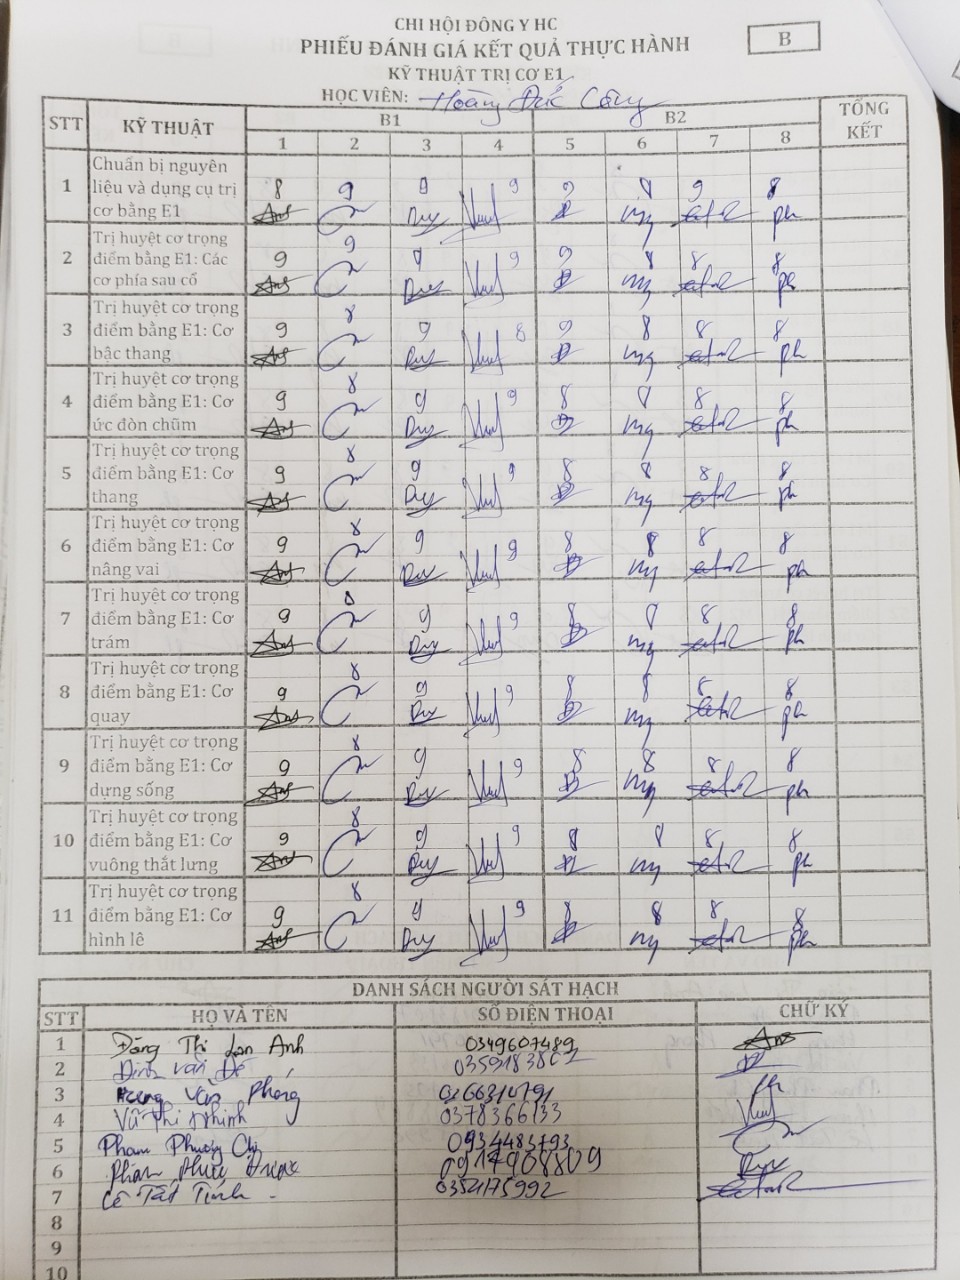 CHI HỘI ĐÔNG Y HC
PHIẾU ĐÁNH GIÁ KẾT QUẢ THỰC HÀNH
B
KỸ THUẬT TRỊ CƠ E1
HỌC VIÊN: Hoàng Đức Công
STT KỸ THUẬT B1 B2 TỔNG KẾT
1 2 3 4 5 6 7 8
1 Chuẩn bị nguyên liệu và dụng cụ trị cơ bằng E1 8 9 9 9 9 8 9 8
2 Trị huyệt cơ trọng điểm bằng E1: Các cơ phía sau cổ 9 9 9 9 9 8 8 8
3 Trị huyệt cơ trọng điểm bằng E1: Cơ bậc thang 9 8 9 8 9 8 8 8
4 Trị huyệt cơ trọng điểm bằng E1: Cơ ức đòn chũm 9 8 9 9 8 8 8 8
5 Trị huyệt cơ trọng điểm bằng E1: Cơ thang 9 8 9 9 8 8 8 8
6 Trị huyệt cơ trọng điểm bằng E1: Cơ nâng vai 9 8 9 9 8 8 8 8
7 Trị huyệt cơ trọng điểm bằng E1: Cơ trám 9 8 9 9 8 8 8 8
8 Trị huyệt cơ trọng điểm bằng E1: Cơ quay 9 8 9 9 8 8 8 8
9 Trị huyệt cơ trọng điểm bằng E1: Cơ dựng sống 9 8 9 9 8 8 8 8
10 Trị huyệt cơ trọng điểm bằng E1: Cơ vuông thắt lưng 9 8 9 9 8 8 8 8
11 Trị huyệt cơ trọng điểm bằng E1: Cơ hình lê 9 8 9 9 8 8 8 8
DANH SÁCH NGƯỜI SÁT HẠCH
STT HỌ VÀ TÊN SỐ ĐIỆN THOẠI CHỮ KÝ
1 Đặng Thị Lan Anh 0349607489
2 Đinh Văn Đế
3 Văn Phóng
4 Vũ Thị Nhinh 0378366133
5 Phạm Phương Chi 0934483793
6 Phan 0917908809
7 Lê Tất Tính 0354175992
8
9
10